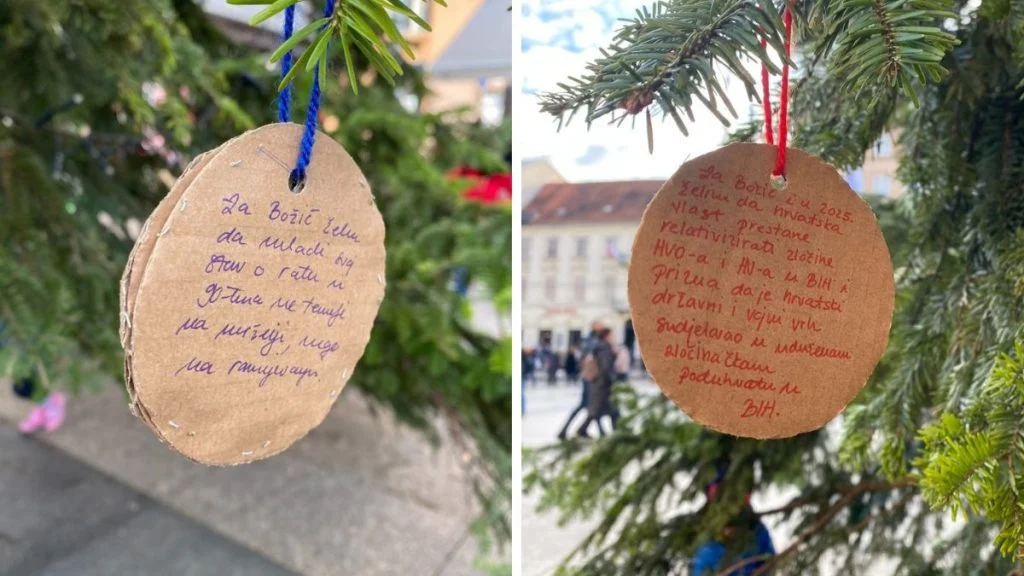 Za Božić želim
da mladi svoj
stav o ratu u
90-tima ne temelje
na mržnji, nego
na razmjevanju.
Za Božić i u 2025.
želim da hrvatska
vlast prestane
relativizirati zločine
HVO-a i HV-a u BIH i
prizna da je hrvatski
državni i vojni vrh
sudjelovao u udruženom
zločinačkom
poduhvatu u
BIH.